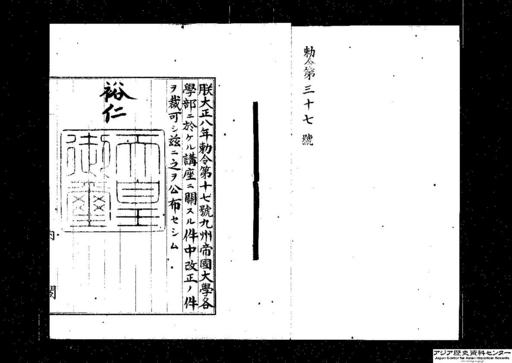 勅令第三十七號
朕大正八年勅令第十七號九州帝國大學各
學部ニ於ケル講座ニ關スル件中改正ノ件
ヲ裁可シ茲ニ之ヲ公布セシム
裕仁
天皇
御璽
内閣
アジア歴史資料センター
Japan Center for Asian Historical Records